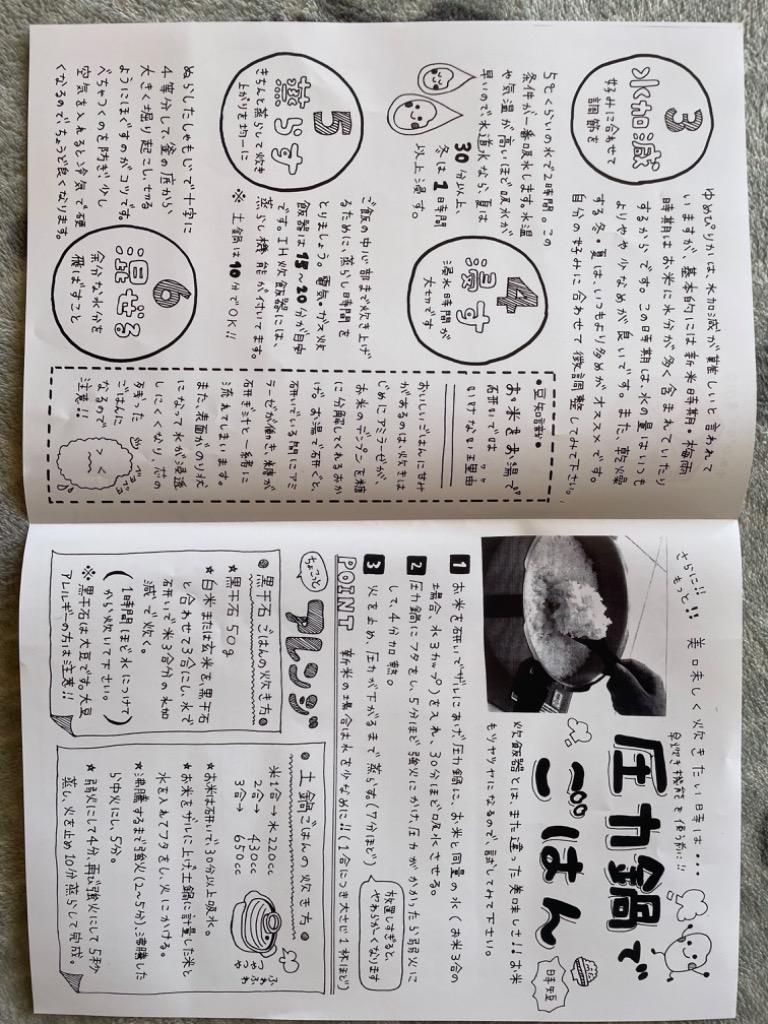 3
水加減
好みに合わせて
調節を
ゆめぴりかは、水加減が難しいと言われて
いますが、基本的には新米時期。梅雨
時期はお米に水分が多く含まれていたり
するからです。この時期は、水の量はいつも
よりやや少なめが良いです。また、乾燥
する冬・夏は、いつもより多めがオススメです。
自分の好みに合わせて微調整してみて下さい。
4
浸す
浸水時間が
大切です
5℃くらいの水で2時間。この
条件が一番吸水します。水温
や気温が高いほど吸水が
早いので、水道水なら、夏は
30分以上、
冬は1時間
以上浸す。
5
蒸らす
きちんと蒸らして炊き
上がりを均一に
ご飯の中心部まで炊き上げ
るために、蒸らし時間を
とりましょう。電気・ガス炊
飯器は15〜20分が目安
です。IH炊飯器には、
蒸らし機能が付いてます。
※土鍋は10分でOK!!
6
混ぜる
余分な水分を
飛ばすこと
ぬらしたしゃもじで十字に
4等分して、釜の底から、
大きく掘り起こし、切る
ようにほぐすのがコツです。
べちゃつくのを防ぎ、少し
空気を入れると、冷気で硬
くなるので、ちょうど良くなります。
・豆知識・
お米をお湯で
研いでは
いけない理由
ワケ
おいしいごはんに甘味
があるのは、炊きは
じめにアミラーゼが、
お米のデンプンを糖
に分解してくれるおか
げ。お湯で研ぐと、
研いでいる間にアミ
ラーゼが働き、糖が
研ぎ汁と一緒に
流れてしまいます。
また、表面がのり状
になって水が浸透
しにくくなり、芯の
残った
ごはんに
なるので
注意!!
さらに!!
もっと!!
美味しく炊きたい時は・・・
早炊き機能を使う前に!!
圧力鍋で
ごはん
時短
炊飯器とは、また違った美味しさ!!お米
もツヤツヤになるので、試してみて下さい。
1 お米を研いでザルにあげ、圧力鍋に、お米と同量の水(お米3合の
場合、水3カップ)を入れ、30分ほど吸水させる。
2 圧力鍋にフタをし、5分ほど強火にかけ、圧力がかかったら弱火に
して、4分加熱。
3 火を止め、圧力が下がるまで蒸らす。(7分ほど)
放置しすぎると、
やわらか〜くなります
POINT 新米の場合は水を少なめに!!(1合につき大さじ1杯ほど)
ちょこっと
アレンジ
●黒千石ごはんの炊き方●
★黒千石50g
★白米または玄米を黒千石
と合わせて3合にし、水で
研いで米3合分の水加
減で炊く。
(1時間ほど水につけて
から炊いて下さい。)
※黒千石は大豆です。大豆
アレルギーの方は注意!!
●土鍋ごはんの炊き方●
米1合→水220cc
2合→430cc
3合→650cc
★お米は研いで、30分以上吸水。
★お米をザルに上げ土鍋に計量した米と
水を入れてフタをし、火にかける。
★沸騰するまで強火(2〜5分)、沸騰した
ら中火にし、5分。
★弱火にして4分、再び強火にして5秒。
蒸し、火を止め10分蒸らして完成。